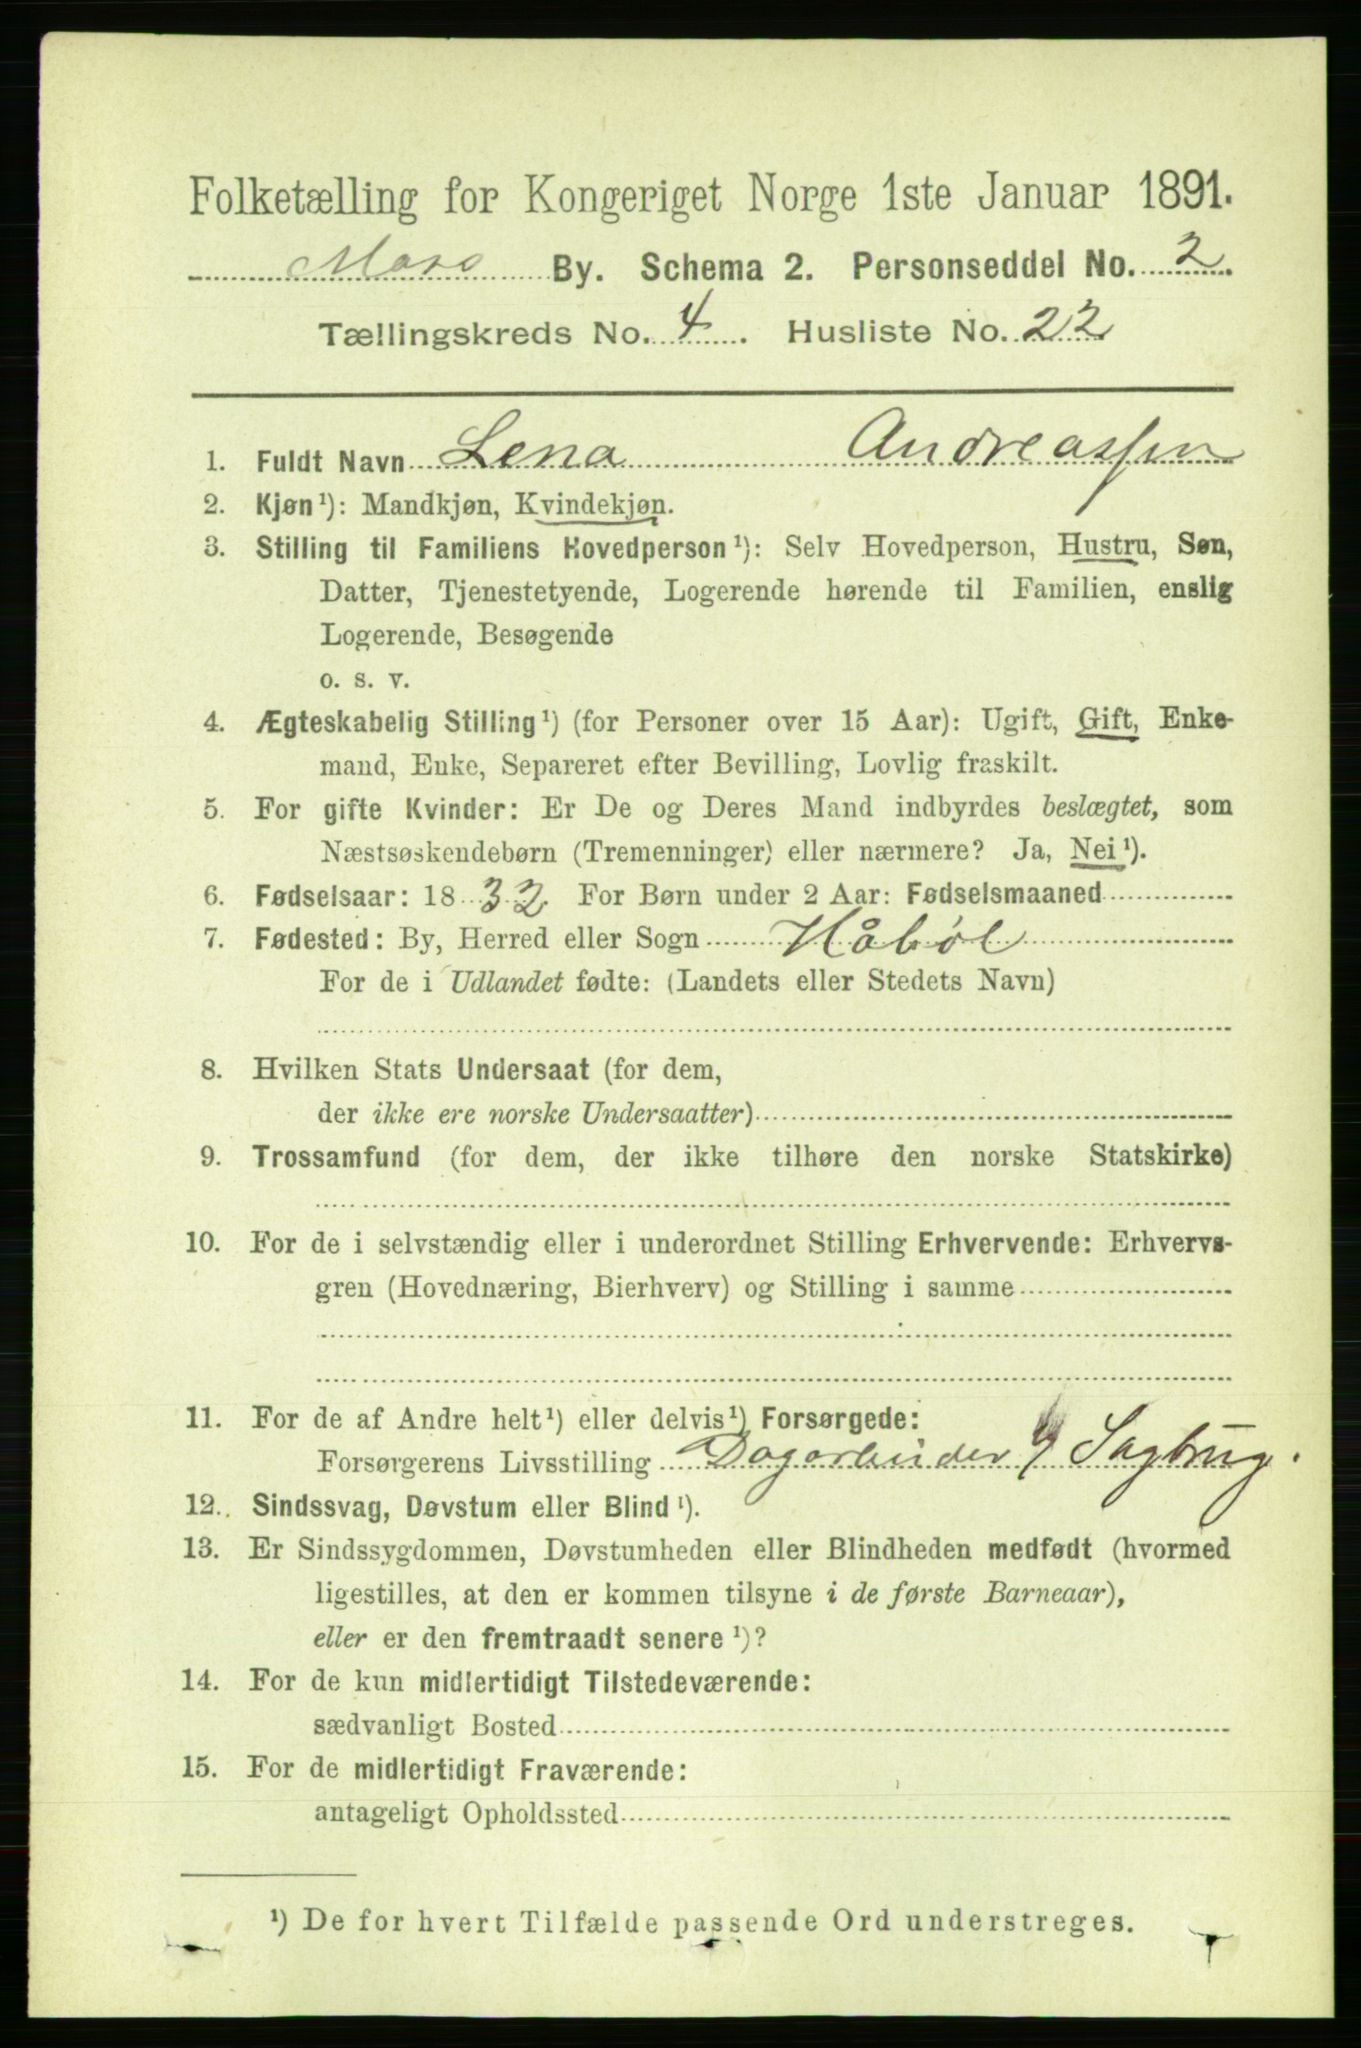 Folketælling for Kongeriget Norge 1ste Januar 1891.
Moss By. Schema 2. Personseddel No. 2
Tællingskreds No. 4. Husliste No. 22
1. Fuldt Navn Lena Andreassen
2. Kjøn¹): Mandkjøn, Kvindekjøn.
3. Stilling til Familiens Hovedperson¹): Selv Hovedperson, Hustru, Søn,
Datter, Tjenestetyende, Logerende hørende til Familien, enslig
Logerende, Besøgende
o. s. v.
4. Ægteskabelig Stilling¹) (for Personer over 15 Aar): Ugift, Gift, Enke-
mand, Enke, Separeret efter Bevilling, Lovlig fraskilt.
5. For gifte Kvinder: Er De og Deres Mand indbyrdes beslægtet, som
Næstsøskendebørn (Tremenninger) eller nærmere? Ja, Nei¹).
6. Fødselsaar: 1832 For Børn under 2 Aar: Fødselsmaaned
7. Fødested: By, Herred eller Sogn Håbøl
For de i Udlandet fødte: (Landets eller Stedets Navn)
8. Hvilken Stats Undersaat (for dem,
der ikke ere norske Undersaatter)
9. Trossamfund (for dem, der ikke tilhøre den norske Statskirke)
10. For de i selvstændig eller i underordnet Stilling Erhvervende: Erhvervs-
gren (Hovednæring, Bierhverv) og Stilling i samme
11. For de af Andre helt¹) eller delvis¹) Forsørgede:
Forsørgerens Livsstilling Dagarbeider Sagbrug.
12. Sindssvag, Døvstum eller Blind¹).
13. Er Sindssygdommen, Døvstumheden eller Blindheden medfødt (hvormed
ligestilles, at den er kommen tilsyne i de første Barneaar),
eller er den fremtraadt senere¹)?
14. For de kun midlertidigt Tilstedeværende:
sædvanligt Bosted
15. For de midlertidigt Fraværende:
antageligt Opholdssted
¹) De for hvert Tilfælde passende Ord understreges.